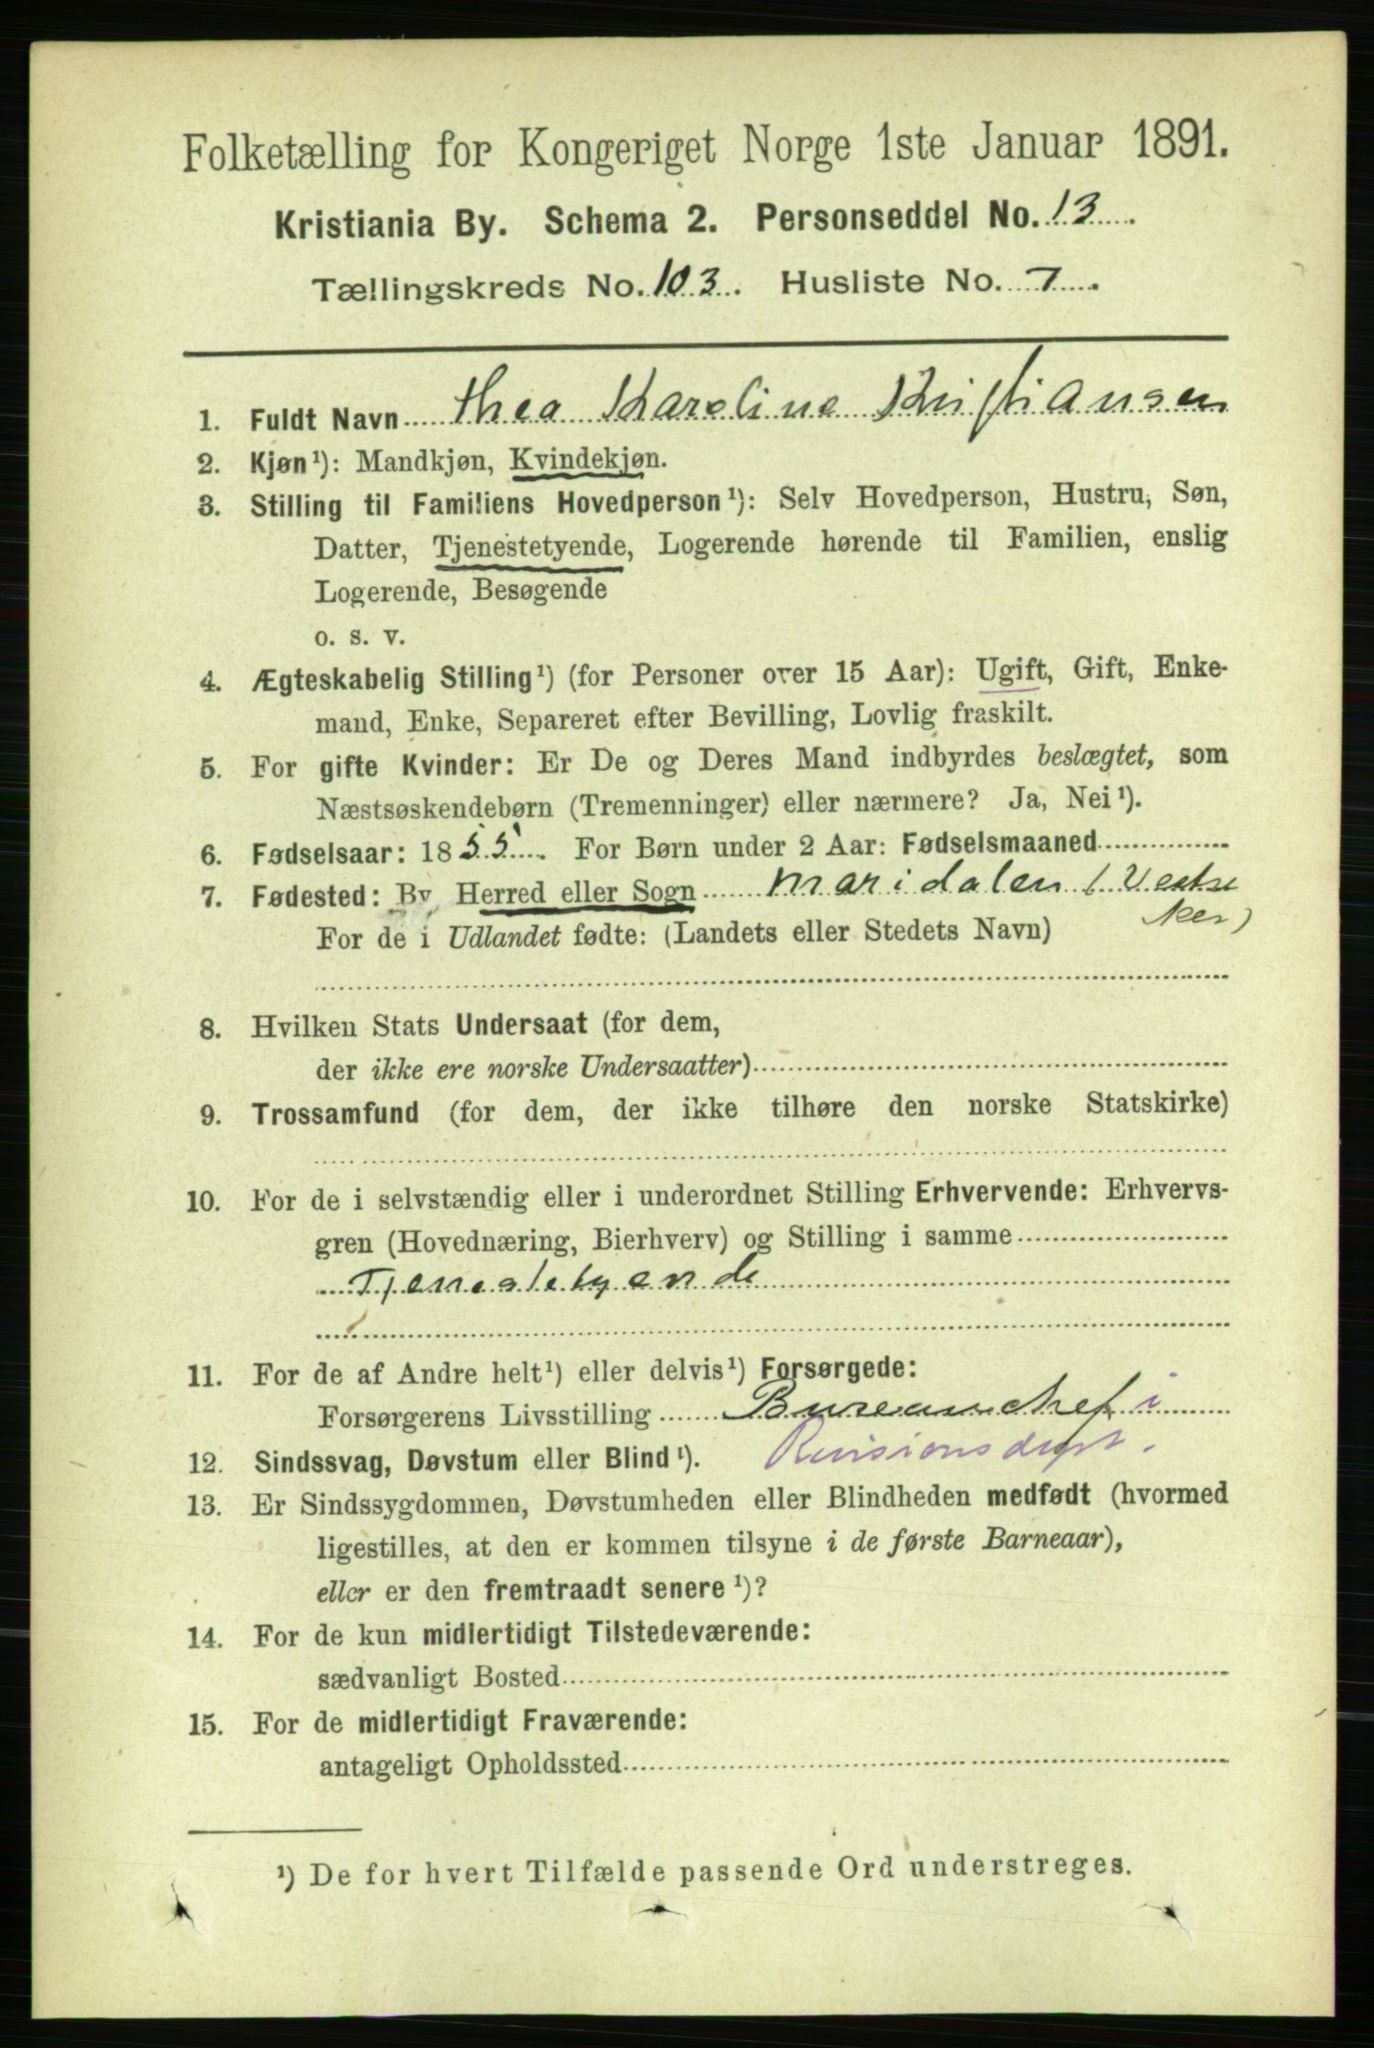 Folketælling for Kongeriget Norge 1ste Januar 1891.
Kristiania By. Schema 2. Personseddel No. 13.
Tællingskreds No. 103. Husliste No. 7.
1. Fuldt Navn Thea Karoline Kristiansen
2. Kjøn¹): Mandkjøn, Kvindekjøn.
3. Stilling til Familiens Hovedperson¹): Selv Hovedperson, Hustru, Søn,
Datter, Tjenestetyende, Logerende hørende til Familien, enslig
Logerende, Besøgende
o. s. v.
4. Ægteskabelig Stilling¹) (for Personer over 15 Aar): Ugift, Gift, Enke-
mand, Enke, Separeret efter Bevilling, Lovlig fraskilt.
5. For gifte Kvinder: Er De og Deres Mand indbyrdes beslægtet, som
Næstsøskendebørn (Tremenninger) eller nærmere? Ja, Nei¹).
6. Fødselsaar: 1855. For Børn under 2 Aar: Fødselsmaaned
7. Fødested: By Herred eller Sogn Maridalen (Vestre
Aker)
For de i Udlandet fødte: (Landets eller Stedets Navn)
8. Hvilken Stats Undersaat (for dem,
der ikke ere norske Undersaatter)
9. Trossamfund (for dem, der ikke tilhøre den norske Statskirke)
10. For de i selvstændig eller i underordnet Stilling Erhvervende: Erhvervs-
gren (Hovednæring, Bierhverv) og Stilling i samme
Tjenestetyende
11. For de af Andre helt¹) eller delvis¹) Forsørgede:
Forsørgerens Livsstilling Bureauchef i
12. Sindssvag, Døvstum eller Blind¹). Revisionsdept.
13. Er Sindssygdommen, Døvstumheden eller Blindheden medfødt (hvormed
ligestilles, at den er kommen tilsyne i de første Barneaar),
eller er den fremtraadt senere¹)?
14. For de kun midlertidigt Tilstedeværende:
sædvanligt Bosted
15. For de midlertidigt Fraværende:
antageligt Opholdssted
¹) De for hvert Tilfælde passende Ord understreges.